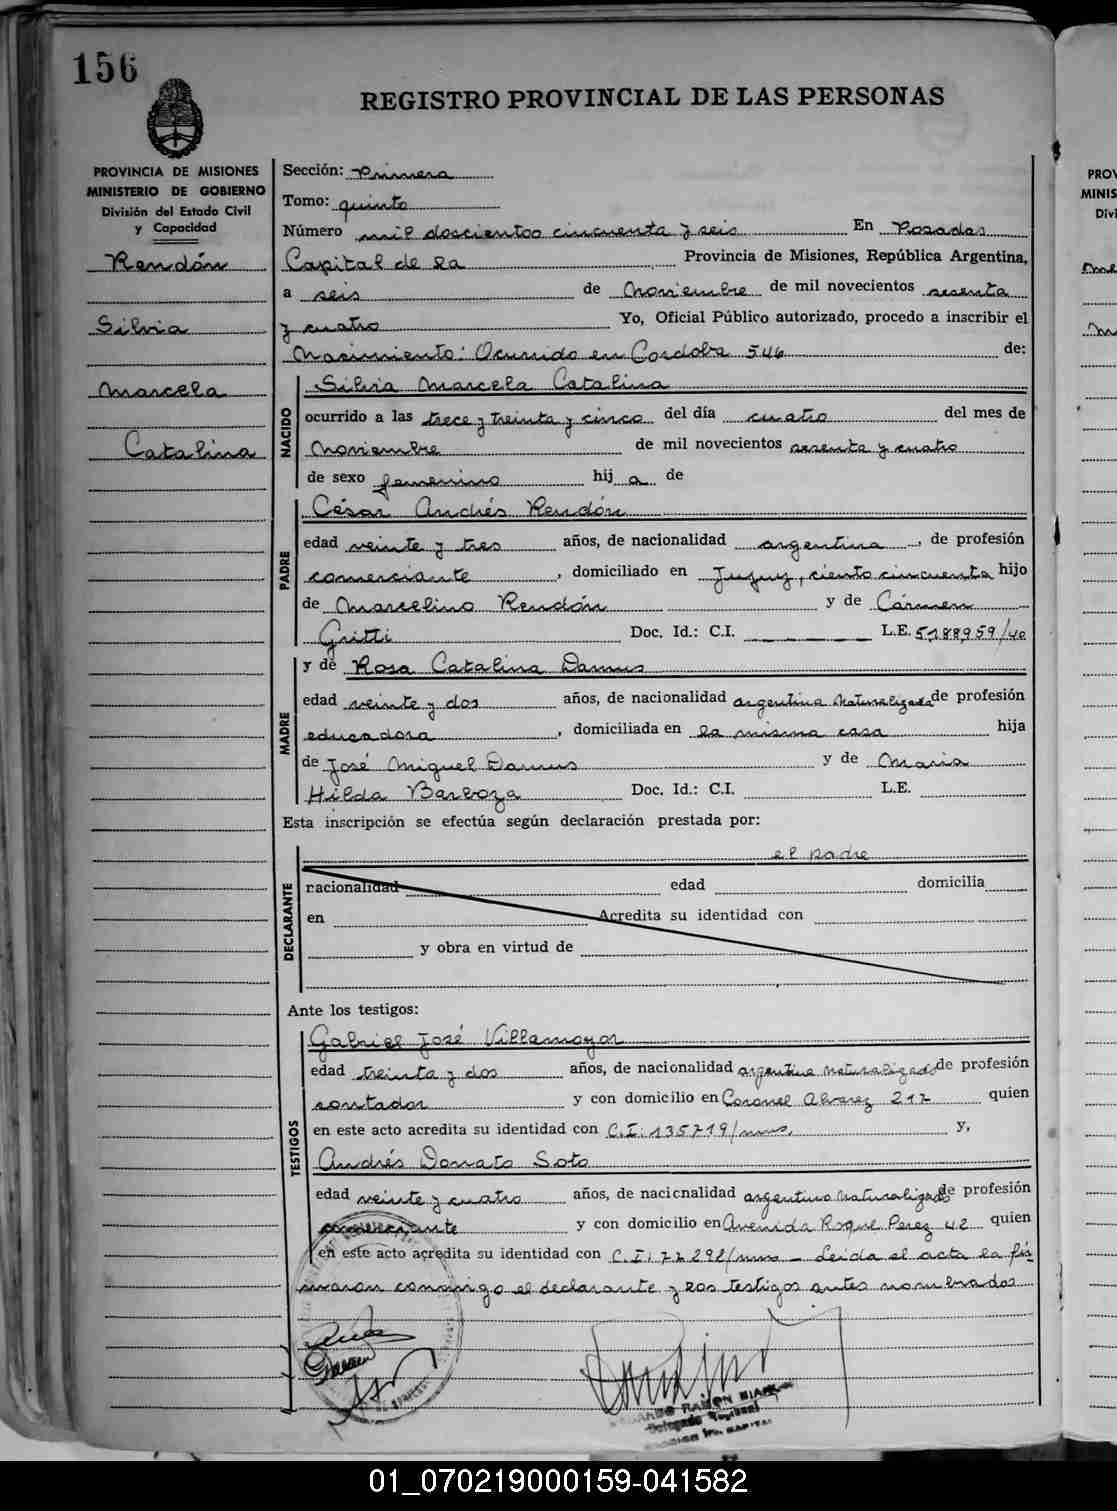 156
REGISTRO PROVINCIAL DE LAS PERSONAS
PROVINCIA DE MISIONES
MINISTERIO DE GOBIERNO
División del Estado Civil
y Capacidad
Rendón
Silvia
Marcela
Catalina
Sección: Primera
Tomo: quinto
Número mil doscientos cincuenta y seis En Posadas
Capital de la Provincia de Misiones, República Argentina,
a seis de Noviembre de mil novecientos sesenta
y cuatro Yo, Oficial Público autorizado, procedo a inscribir el
Nacimiento: Ocurrido en Cordoba 546 de:
NACIDO
Silvia Marcela Catalina
ocurrido a las trece y treinta y cinco del día cuatro del mes de
Noviembre de mil novecientos sesenta y cuatro
de sexo femenino hij a de
PADRE
César Andrés Rendón
edad veinte y tres años, de nacionalidad argentina, de profesión
comerciante, domiciliado en Jujuy, ciento cincuenta hijo
de Marcelino Rendón y de Cármen
Gritti Doc. Id.: C.I. L.E. 5188959/
MADRE
y de Rosa Catalina Damus
edad veinte y dos años, de nacionalidad argentina naturalizada de profesión
educadora, domiciliada en la misma casa hija
de José Miguel Damus y de Maria
Hilda Barboza Doc. Id.: C.I. L.E.
Esta inscripción se efectúa según declaración prestada por:
DECLARANTE
el padre
nacionalidad edad domicilia
en Acredita su identidad con
y obra en virtud de
Ante los testigos:
TESTIGOS
Gabriel José Villamayor
edad treinta y dos años, de nacionalidad argentino naturalizado de profesión
contador y con domicilio en Coronel Alvarez 217 quien
en este acto acredita su identidad con C.I: 135719/mns, y,
Andrés Donato Soto
edad veinte y cuatro años, de nacionalidad argentino naturalizado de profesión
comerciante y con domicilio en Avenida Roque Perez 42 quien
en este acto acredita su identidad con C.I: 77292/mns – Leida el acta la fir
maron conmigo el declarante y los testigos antes nombrados
Delegado Regional
01_070219000159-041582